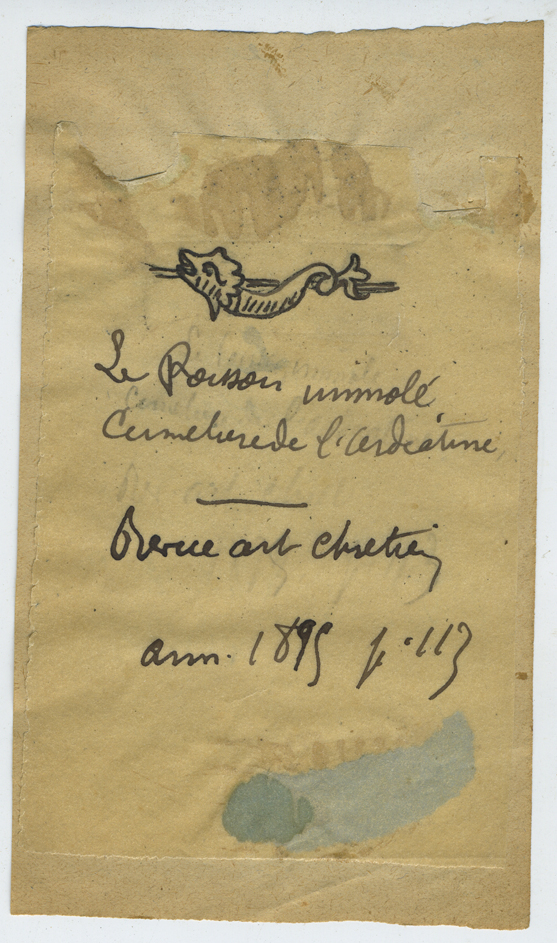 Le Poisson immolé
Cimetière de l'Ardéatine,
Revue art chrétien
ann. 1895 p. 113